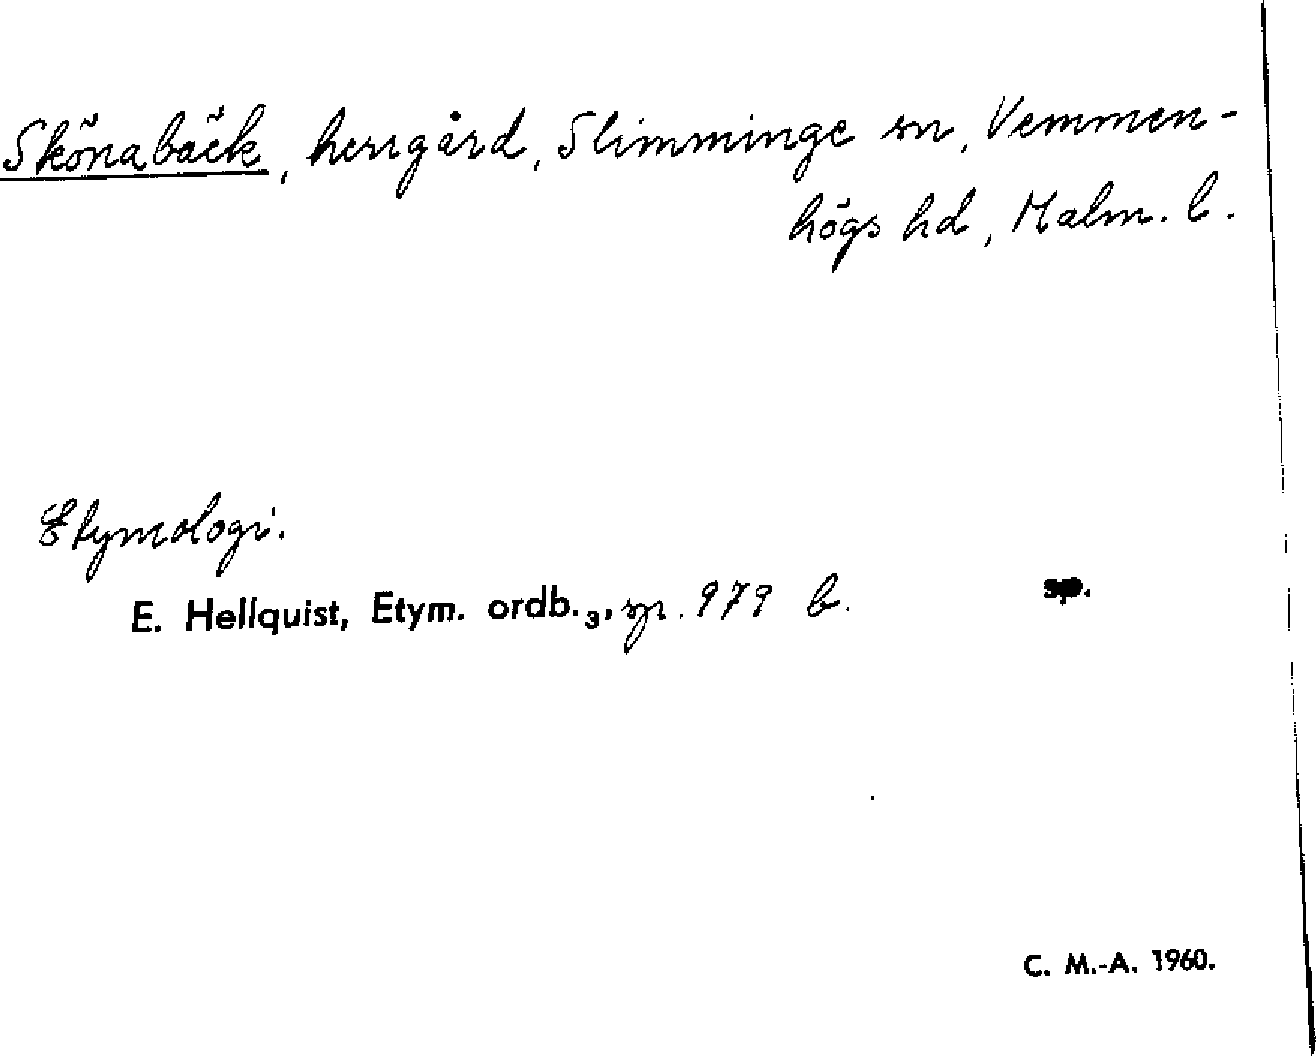 Skönabäck, herrgård, Slimminge sn, Vemmen-
högs hd, Malm. l.
Etymologi.
E. Hellquist, Etym. ordb. 3, sp. 979 b. sp.
C. M.-A. 1960.